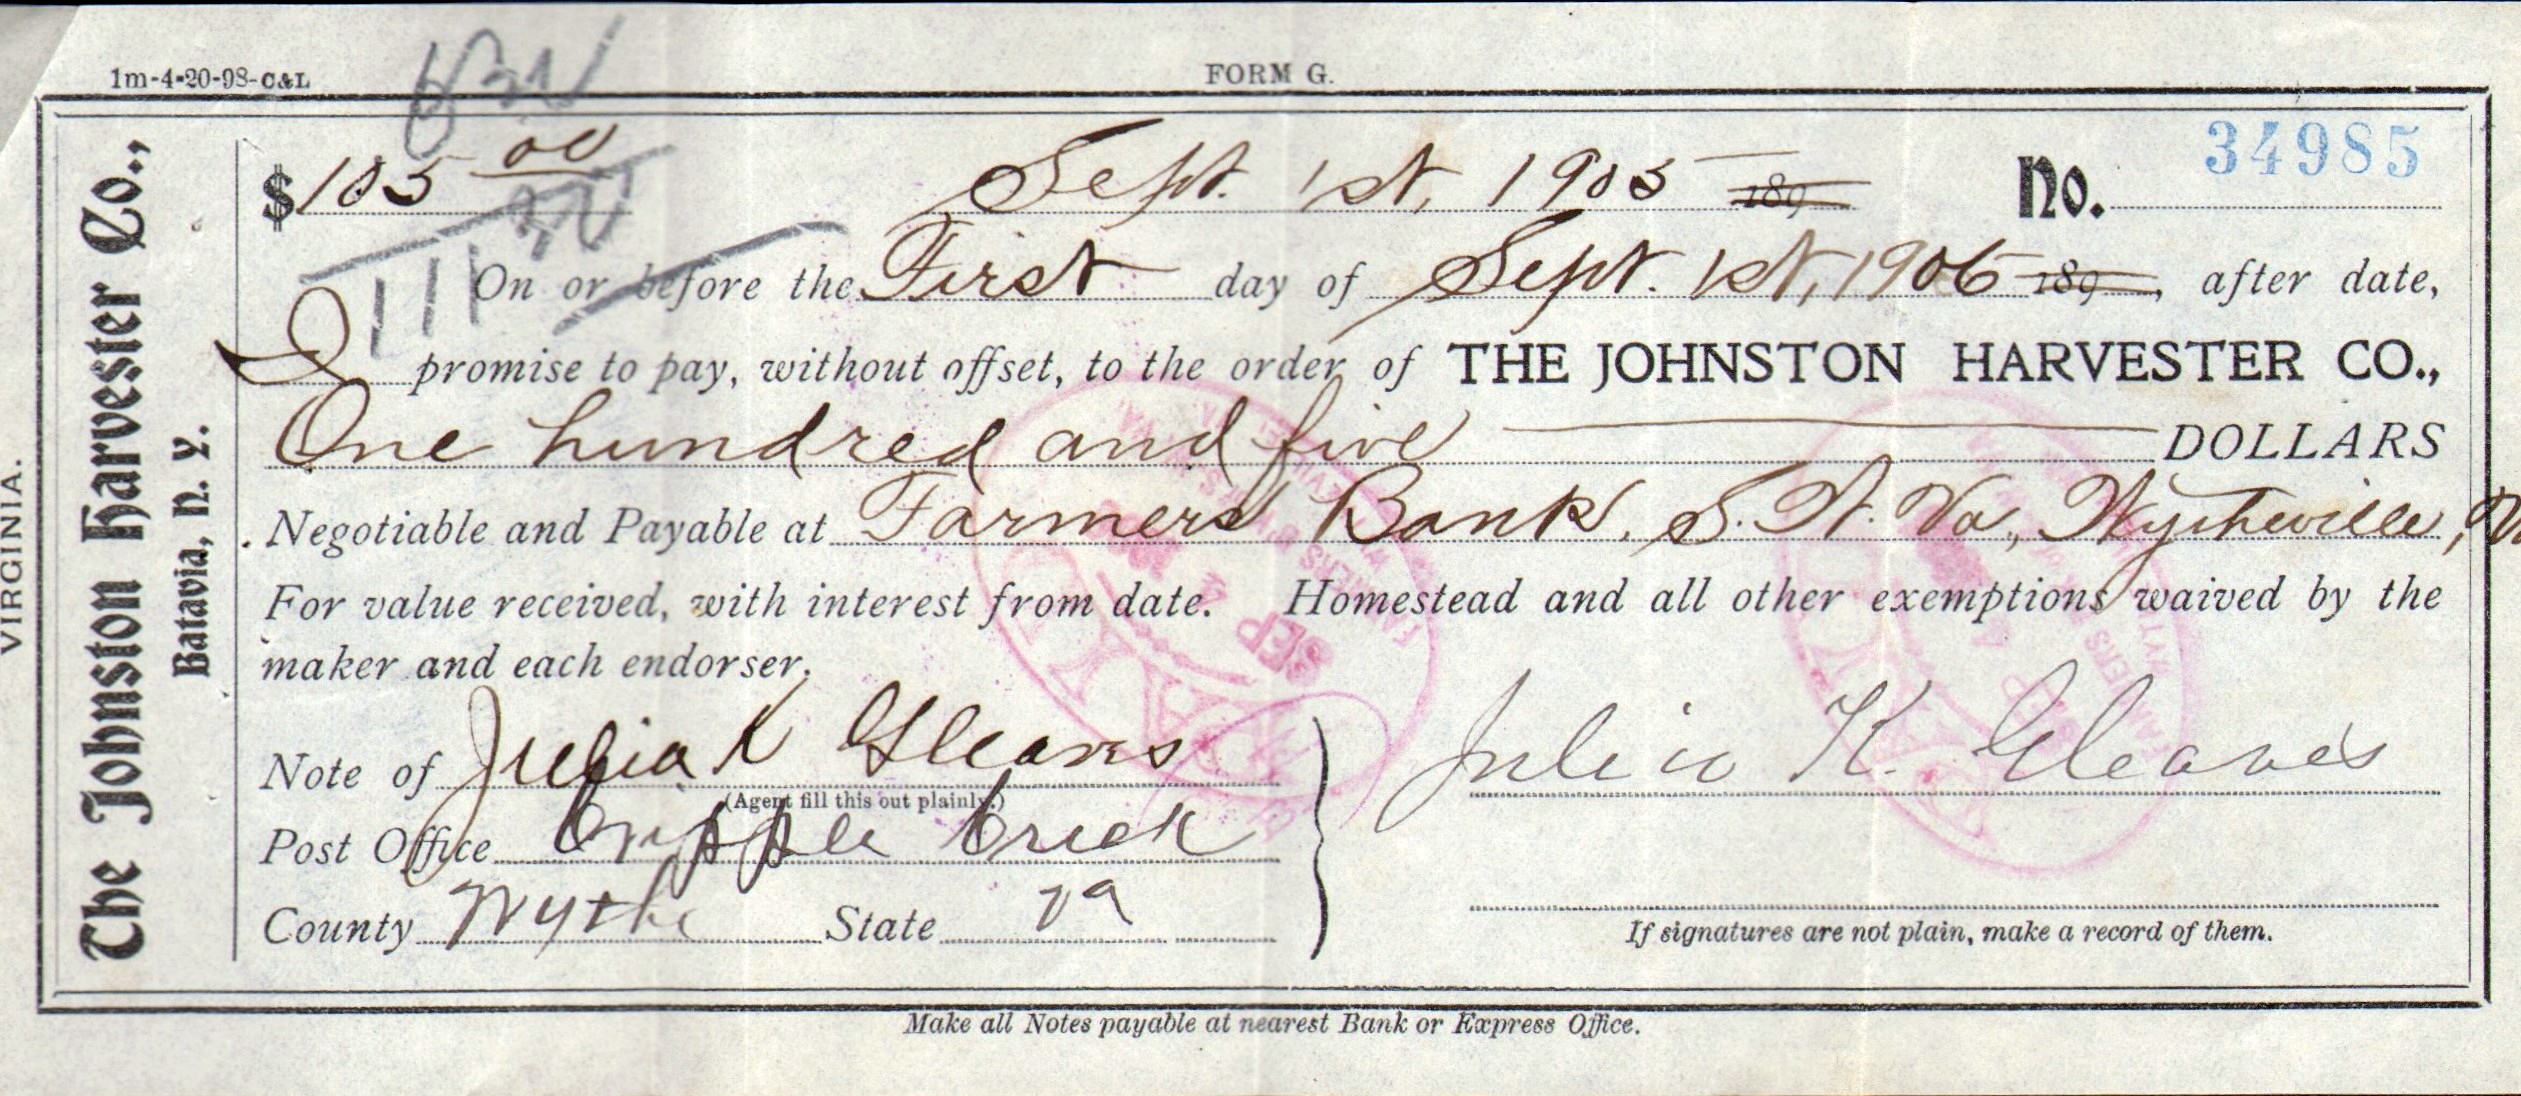 1m-4-20-98-C&L
FORM G.
VIRGINIA.
The Johnston Harvester Co.,
Batavia, N. Y.
$105 00 Sept. 1st, 1905 189 No. 34985
On or before the First day of Sept. 1st, 1906 189 , after date,
I promise to pay, without offset, to the order of THE JOHNSTON HARVESTER CO.,
One hundred and five DOLLARS
Negotiable and Payable at Farmers Bank, S. W. Va., Wytheville, V
For value received, with interest from date. Homestead and all other exemptions waived by the
maker and each endorser.
Note of Julia K Gleaves
Julia K. Gleaves
(Agent fill this out plainly.)
Post Office Cripple Creek
County Wythe State Va
If signatures are not plain, make a record of them.
Make all Notes payable at nearest Bank or Express Office.